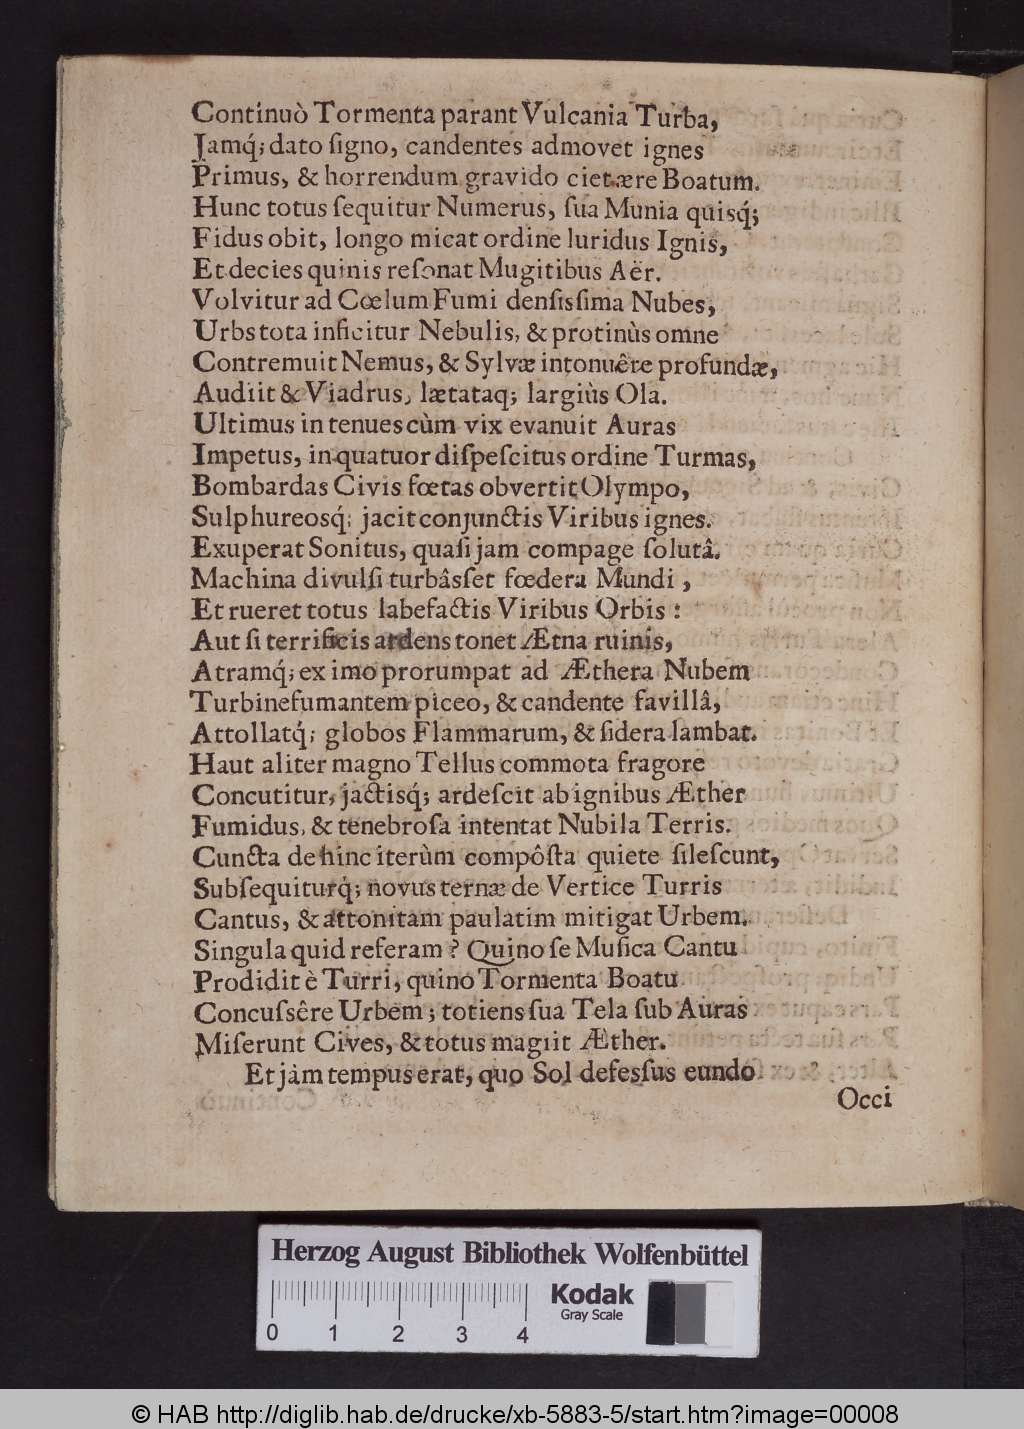 Continuò Tormenta parant Vulcania Turba,
Jamq́; dato ſigno, candentes admovet ignes
Primus, & horrendum gravido ciet ære Boatum.
Hunc totus ſequitur Numerus, ſua Munia quisq́;
Fidus obit, longo micat ordine luridus Ignis,
Et decies quinis reſonat Mugitibus Aër.
Volvitur ad Cœlum Fumi denſisſima Nubes,
Urbs tota inficitur Nebulis, & protinùs omne
Contremuit Nemus, & Sylvæ intonuêre profundæ,
Audiit & Viadrus, lætataq; largiùs Ola.
Ultimus in tenues cùm vix evanuit Auras
Impetus, in quatuor diſpeſcitus ordine Turmas,
Bombardas Civis fœtas obvertit Olympo,
Sulphureosq́; jacit conjunctis Viribus ignes.
Exuperat Sonitus, quaſi jam compage ſolutâ.
Machina divulſi turbâsſet fœdera Mundi,
Et rueret totus labefactis Viribus Orbis:
Aut ſi terrificis ardens tonet Ætna ruinis,
Atramq́; ex imo prorumpat ad Æthera Nubem
Turbine fumantem piceo, & candente favillâ,
Attollatq́; globos Flammarum, & ſidera lambat.
Haut aliter magno Tellus commota fragore
Concutitur, jactisq́; ardeſcit ab ignibus Æther
Fumidus, & tenebroſa intentat Nubila Terris.
Cuncta dehinc iterùm compôſta quiete ſileſcunt,
Subſequiturq́; novus ternæ de Vertice Turris
Cantus, & attonitam paulatim mitigat Urbem.
Singula quid referam? Quino ſe Muſica Cantu
Prodidit è Turri, quino Tormenta Boatu
Concuſsêre Urbem; totiens ſua Tela ſub Auras
Miſerunt Cives, & totus magiit Æther.
Et jàm tempus erat, quo Sol defesſus eundo
Occi
Herzog August Bibliothek Wolfenbüttel
Kodak
Gray Scale
0 1 2 3 4
© HAB http://diglib.hab.de/drucke/xb-5883-5/start.htm?image=00008